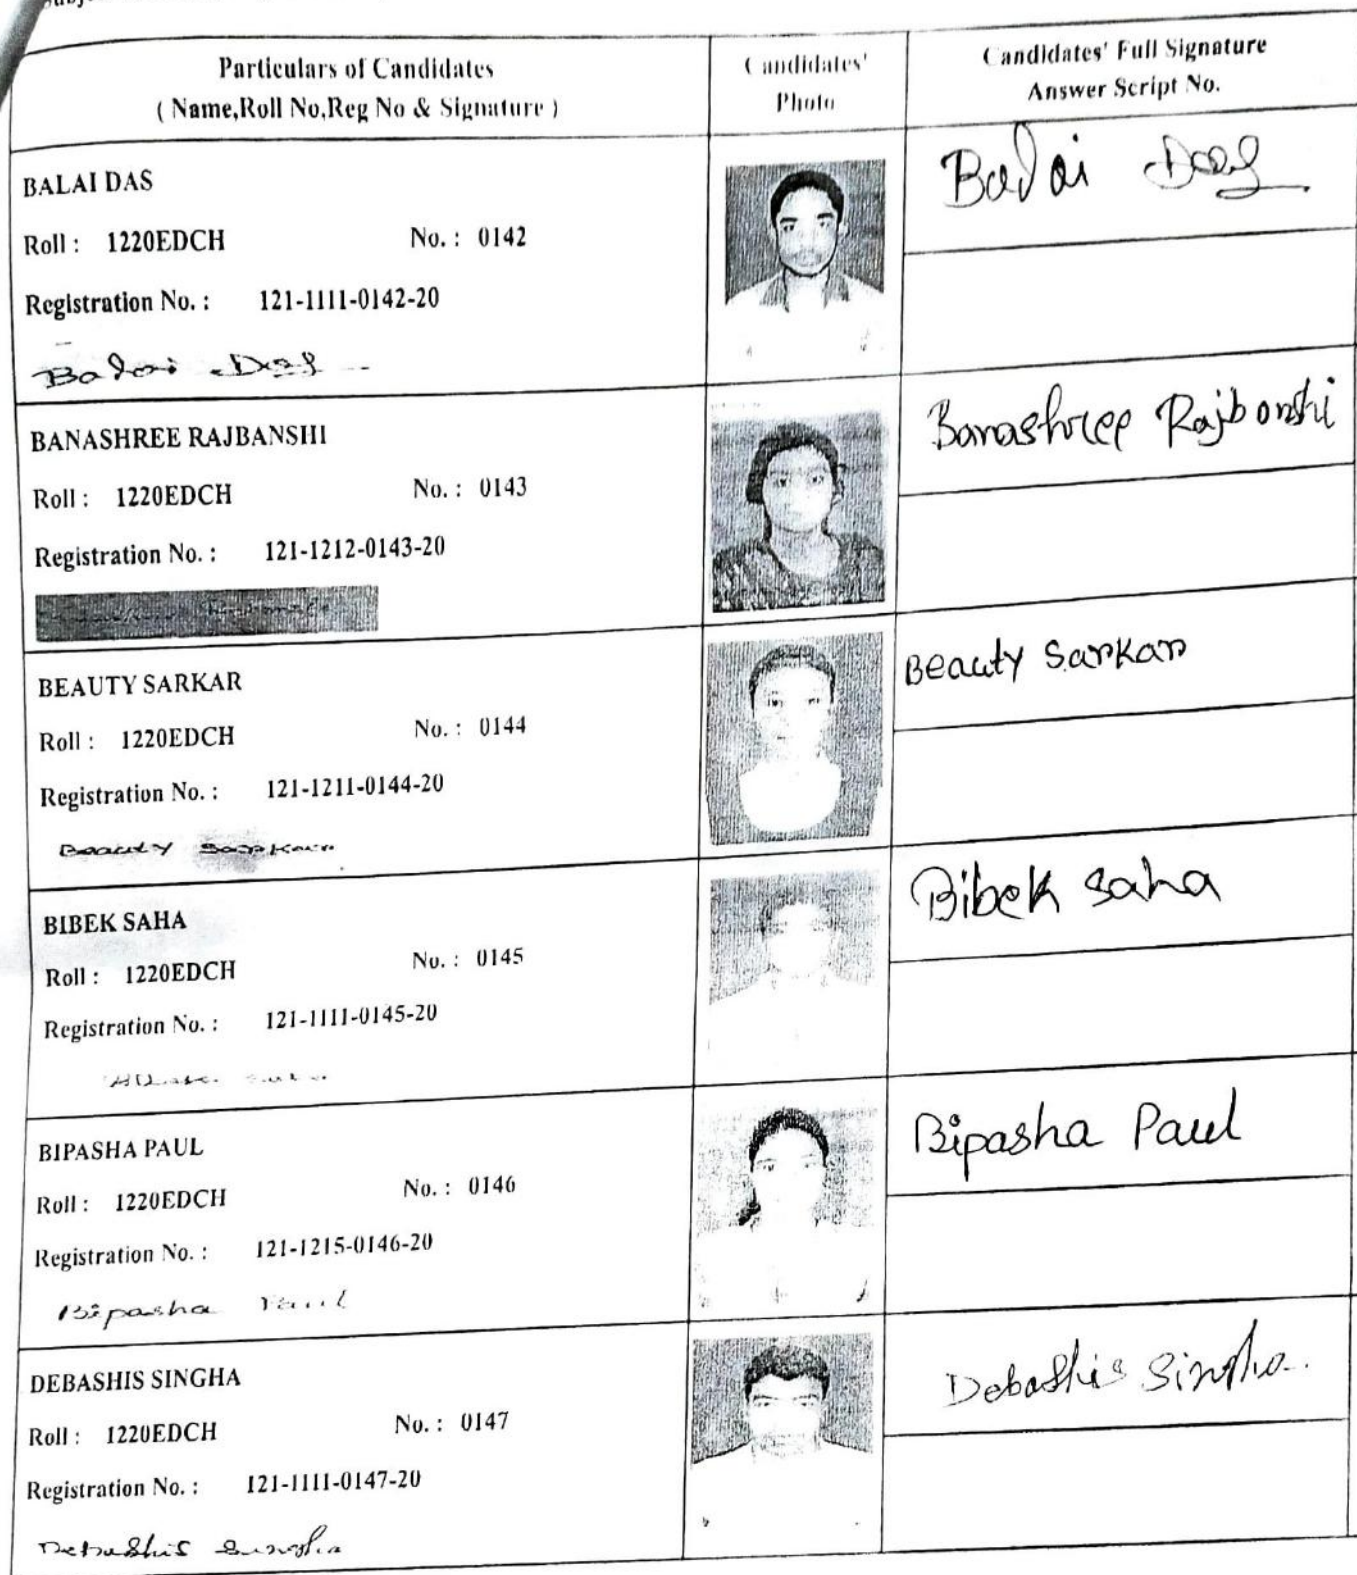 Particulars of Candidates
( Name,Roll No,Reg No & Signature )
Candidates'
Photo
Candidates' Full Signature
Answer Script No.
BALAI DAS
Roll : 1220EDCH No. : 0142
Registration No. : 121-1111-0142-20
Balai Das
Balai Das
BANASHREE RAJBANSHI
Roll : 1220EDCH No. : 0143
Registration No. : 121-1212-0143-20
Banashree Rajbanshi
BEAUTY SARKAR
Roll : 1220EDCH No. : 0144
Registration No. : 121-1211-0144-20
Beauty Sarkar
Beauty Sarkar
BIBEK SAHA
Roll : 1220EDCH No. : 0145
Registration No. : 121-1111-0145-20
Bibek saha
BIPASHA PAUL
Roll : 1220EDCH No. : 0146
Registration No. : 121-1215-0146-20
Bipasha Paul
Bipasha Paul
DEBASHIS SINGHA
Roll : 1220EDCH No. : 0147
Registration No. : 121-1111-0147-20
Debashis Singha
Debashis Singha